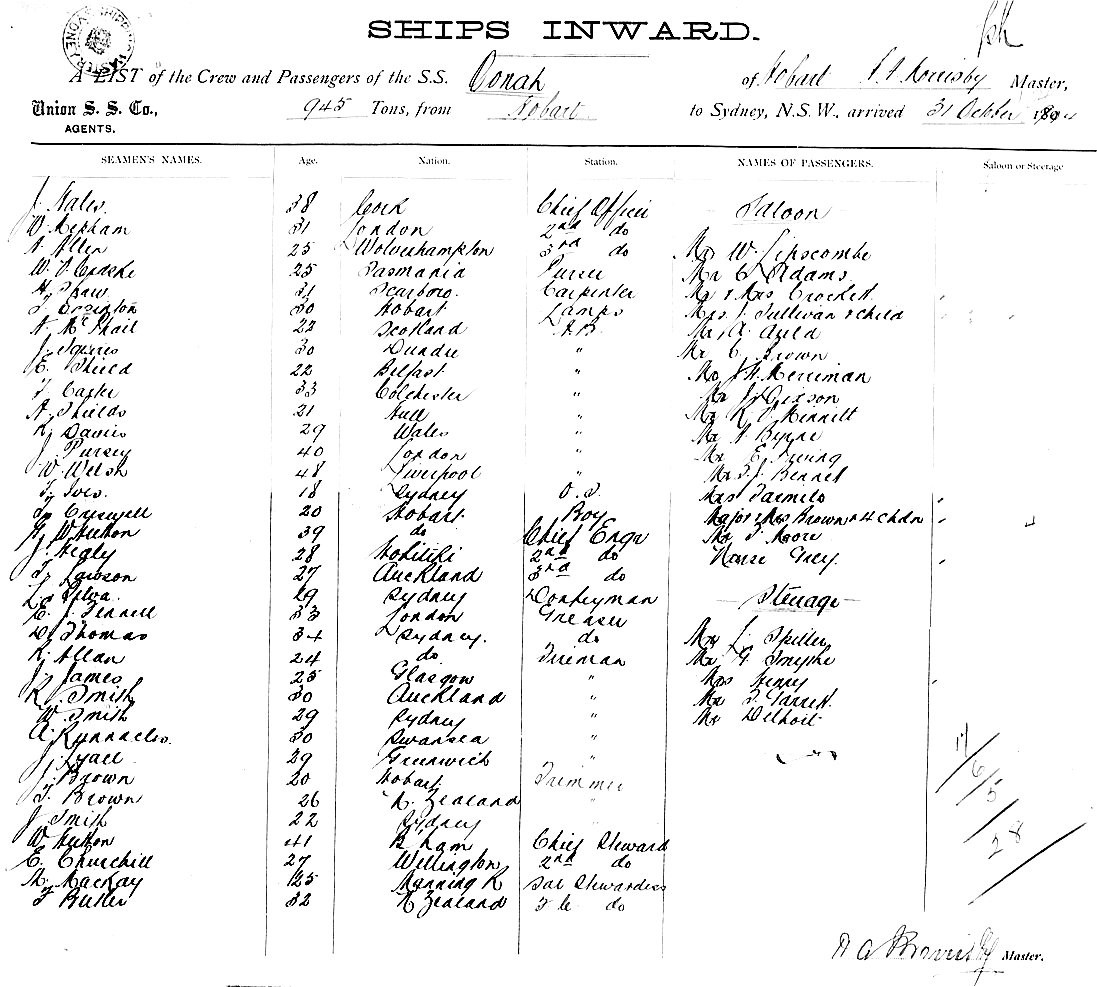 SHIPS INWARD.
A LIST of the Crew and Passengers of the S.S. Oonah of Hobart Master,
Union S. S. Co., 945 Tons, from Hobart to Sydney, N.S.W., arrived 31 October 189
AGENTS.
SEAMEN'S NAMES. Age. Nation. Station. NAMES OF PASSENGERS. Saloon or Steerage
J. 38 Cork Chief Officer Saloon
W. 31 London 2nd do
A. Allen 25 Wolverhampton 3rd do Mr W. Lipscombe
W. 25 Tasmania Purser Mr C Adams
H. Shaw 31 Scarboro. Carpenter Mr & Mrs Crockett
30 Hobart Lamps Mrs J Sullivan & child
A. McPhail 22 Scotland A.B. Mr A. Auld
J. Squires 30 Dundee " Mr C. Brown
E. Shield 22 Belfast " Merriman
T. Carter 33 Colchester " Mr Gibson
A. Shields 21 Hull " Mr
R. Davies 29 Wales " Mr Byrne
J. Pursey 40 London " Mr E.
W. Welsh 48 Liverpool " Bennet
T. Ives. 18 Sydney O.S. Mrs
Creswell 20 Hobart Boy Major & Mrs Brown & 4 chdn
W Hutton 39 do Chief Engr Mr T Moore
J. Healy 28 Hokitiki 2nd do Nurse Grey.
T. Lawson 27 Auckland 3rd do
Silva. 29 Sydney Donkeyman Steerage
E. J. Fennell 33 London Greaser
D. Thomas 34 Sydney. do L. Spiller
R. Allan 24 do Fireman Mr G Smythe
J. James 25 Glasgow " Mrs Henry
R. Smith 30 Auckland " Mr Garrett
W. Smith 29 Sydney " Mr
A. Runnacles. 30 Swansea "
J. Lyall 29 Greenwich " 17/6/5
J. Brown 20 Hobart Trimmer
T. Brown 26 N. Zealand "
J Smith 22 Sydney " 28
W Hutton 41 B ham Chief Steward
E. Churchill 27 Wellington 2nd do
MacKay 25 Manning R Sal Stewardess
T Butler 32 N Zealand do
Master.